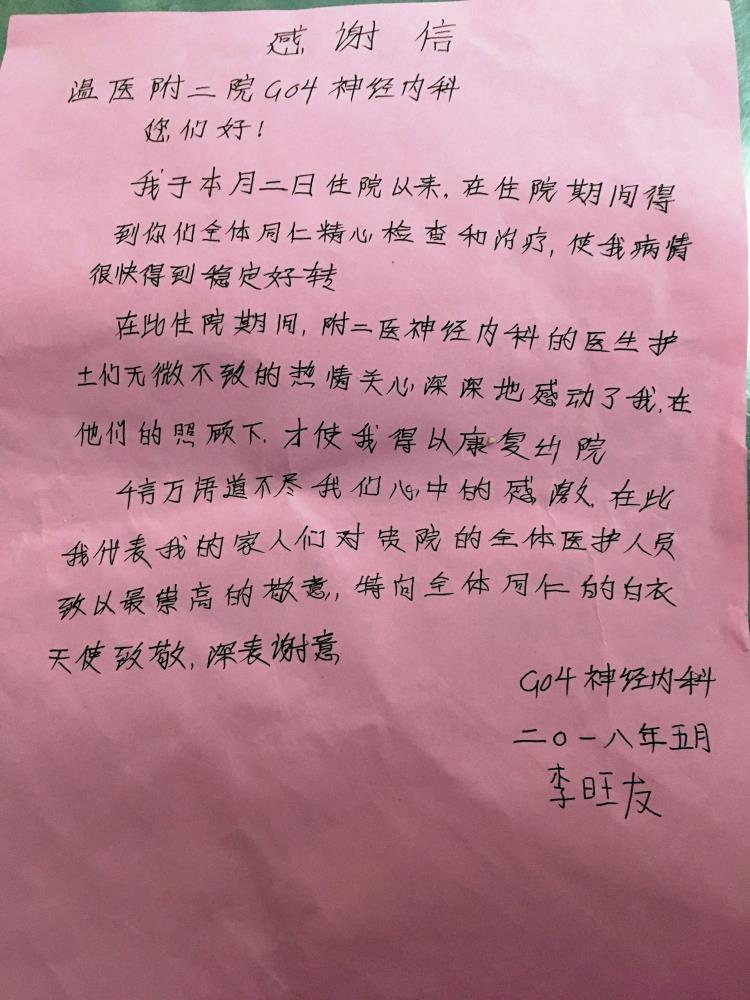 感谢信
温医附二院G04神经内科
您们好!
我于本月二日住院以来,在住院期间得
到你们全体同仁精心检查和治疗,使我病情
很快得到稳定好转
在此住院期间,附二医神经内科的医生护
士们无微不致的热情关心深深地感动了我,在
他们的照顾下,才使我得以康复出院
千言万语道不尽我们心中的感激,在此
我代表我的家人们对贵院的全体医护人员
致以最崇高的敬意,特向全体同仁的白衣
天使致敬,深表谢意
G04神经内科
二〇一八年五月
李旺友